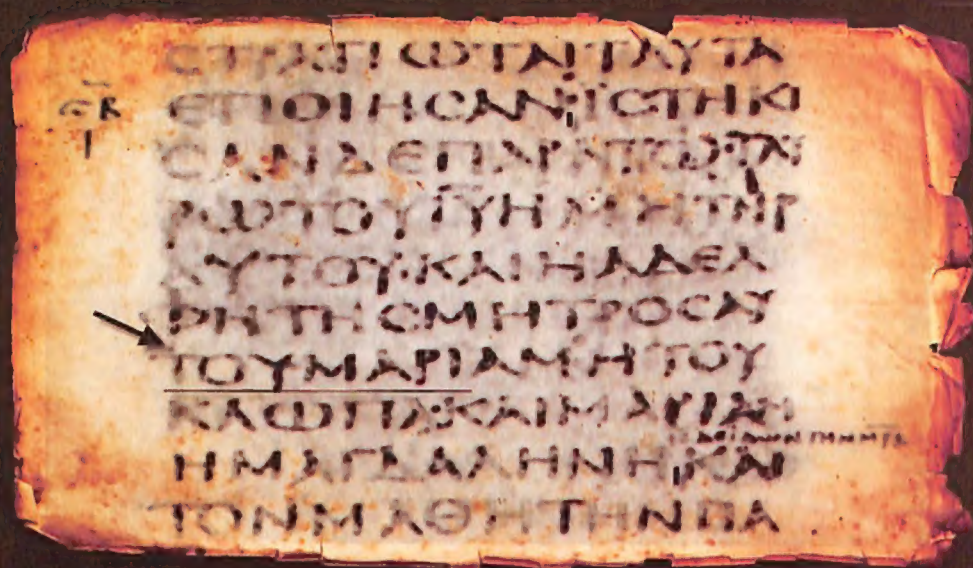 CΤΡΑΤΙΩΤΑΙΤΑΥΤΑ
ΕΠΟΙΗCΑΝΪCΤΗΚΙ
CΑΝΔΕΠΑΡΑΤΩCΤΑΥ
ΡΩΤΟΥΙ̅Υ̅ΗΜΗΤΗΡ
ΑΥΤΟΥΚΑΙΗΑΔΕΛ
ΦΗΤΗCΜΗΤΡΟCΑΥ
ΤΟΥΜΑΡΙΑΜΗΤΟΥ
ΚΛΩΠΑΚΑΙΜΑΡΙΑΜ
ΗΜΑΓΔΑΛΗΝΗΚΑΙ
ΤΟΝΜΑΘΗΤΗΝΠΑ